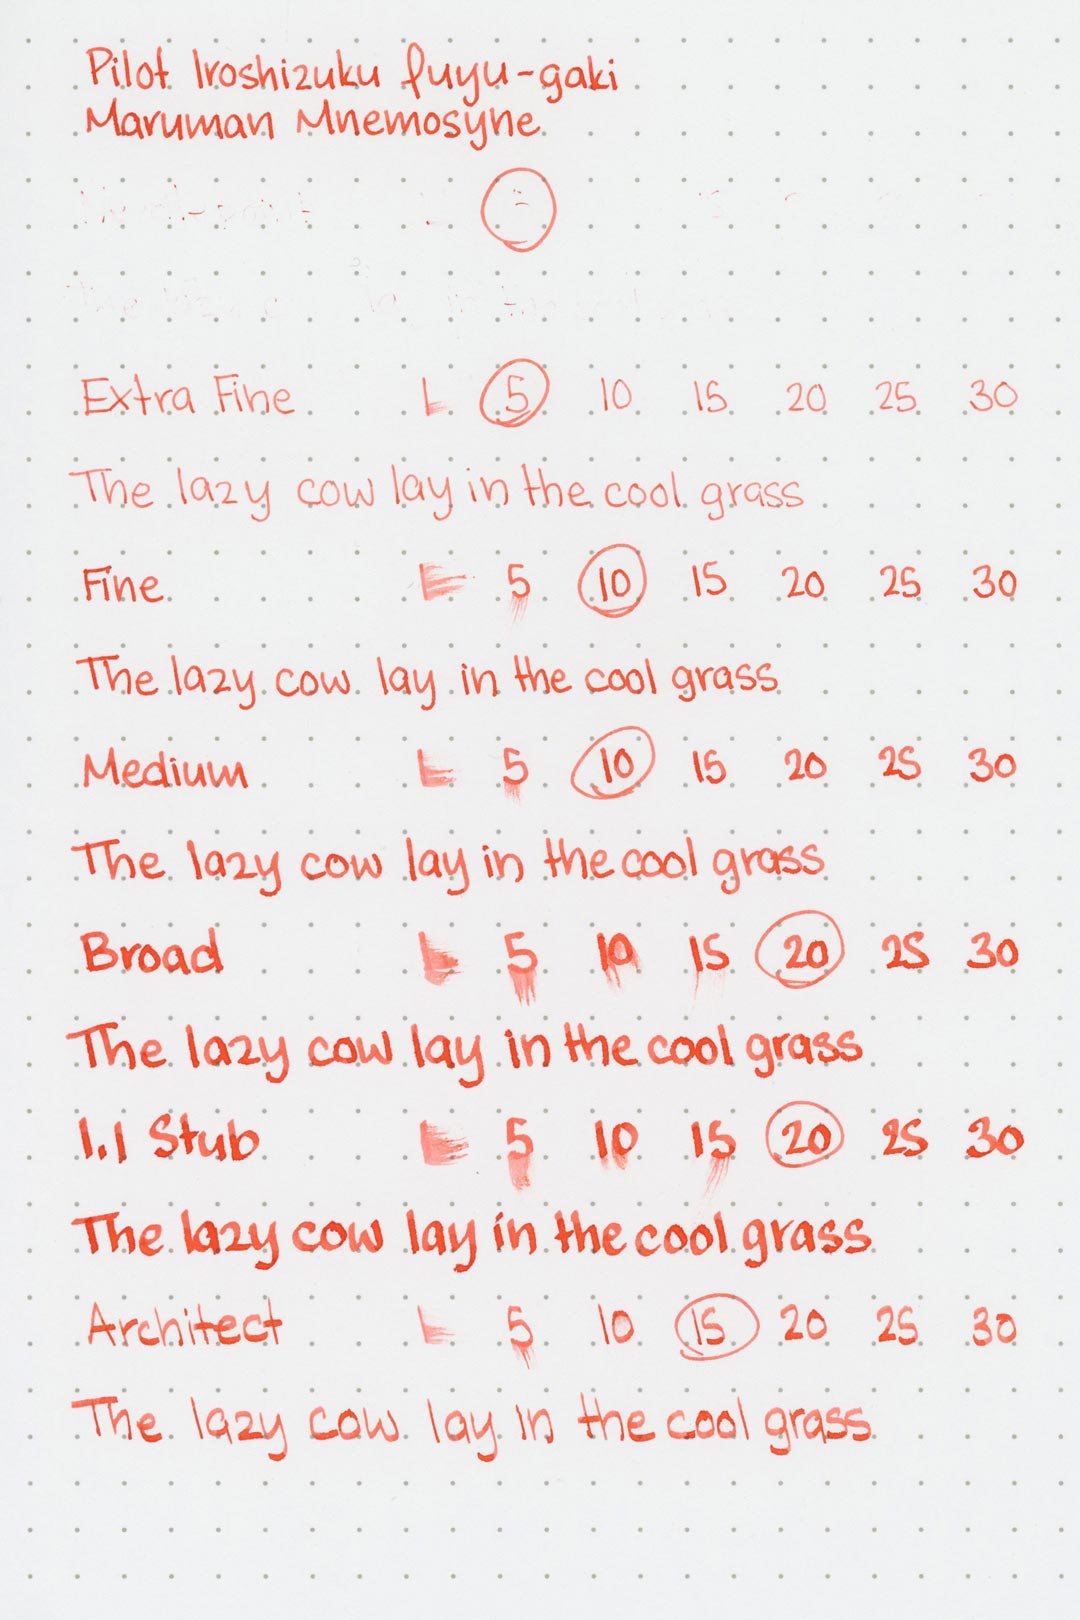 Pilot Iroshizuku fuyu-gaki
Maruman Mnemosyne
Extra Fine 1 5 10 15 20 25 30
The lazy cow lay in the cool grass
Fine 1 5 10 15 20 25 30
The lazy cow lay in the cool grass
Medium 1 5 10 15 20 25 30
The lazy cow lay in the cool grass
Broad 1 5 10 15 20 25 30
The lazy cow lay in the cool grass
1.1 Stub 1 5 10 15 20 25 30
The lazy cow lay in the cool grass
Architect 1 5 10 15 20 25 30
The lazy cow lay in the cool grass